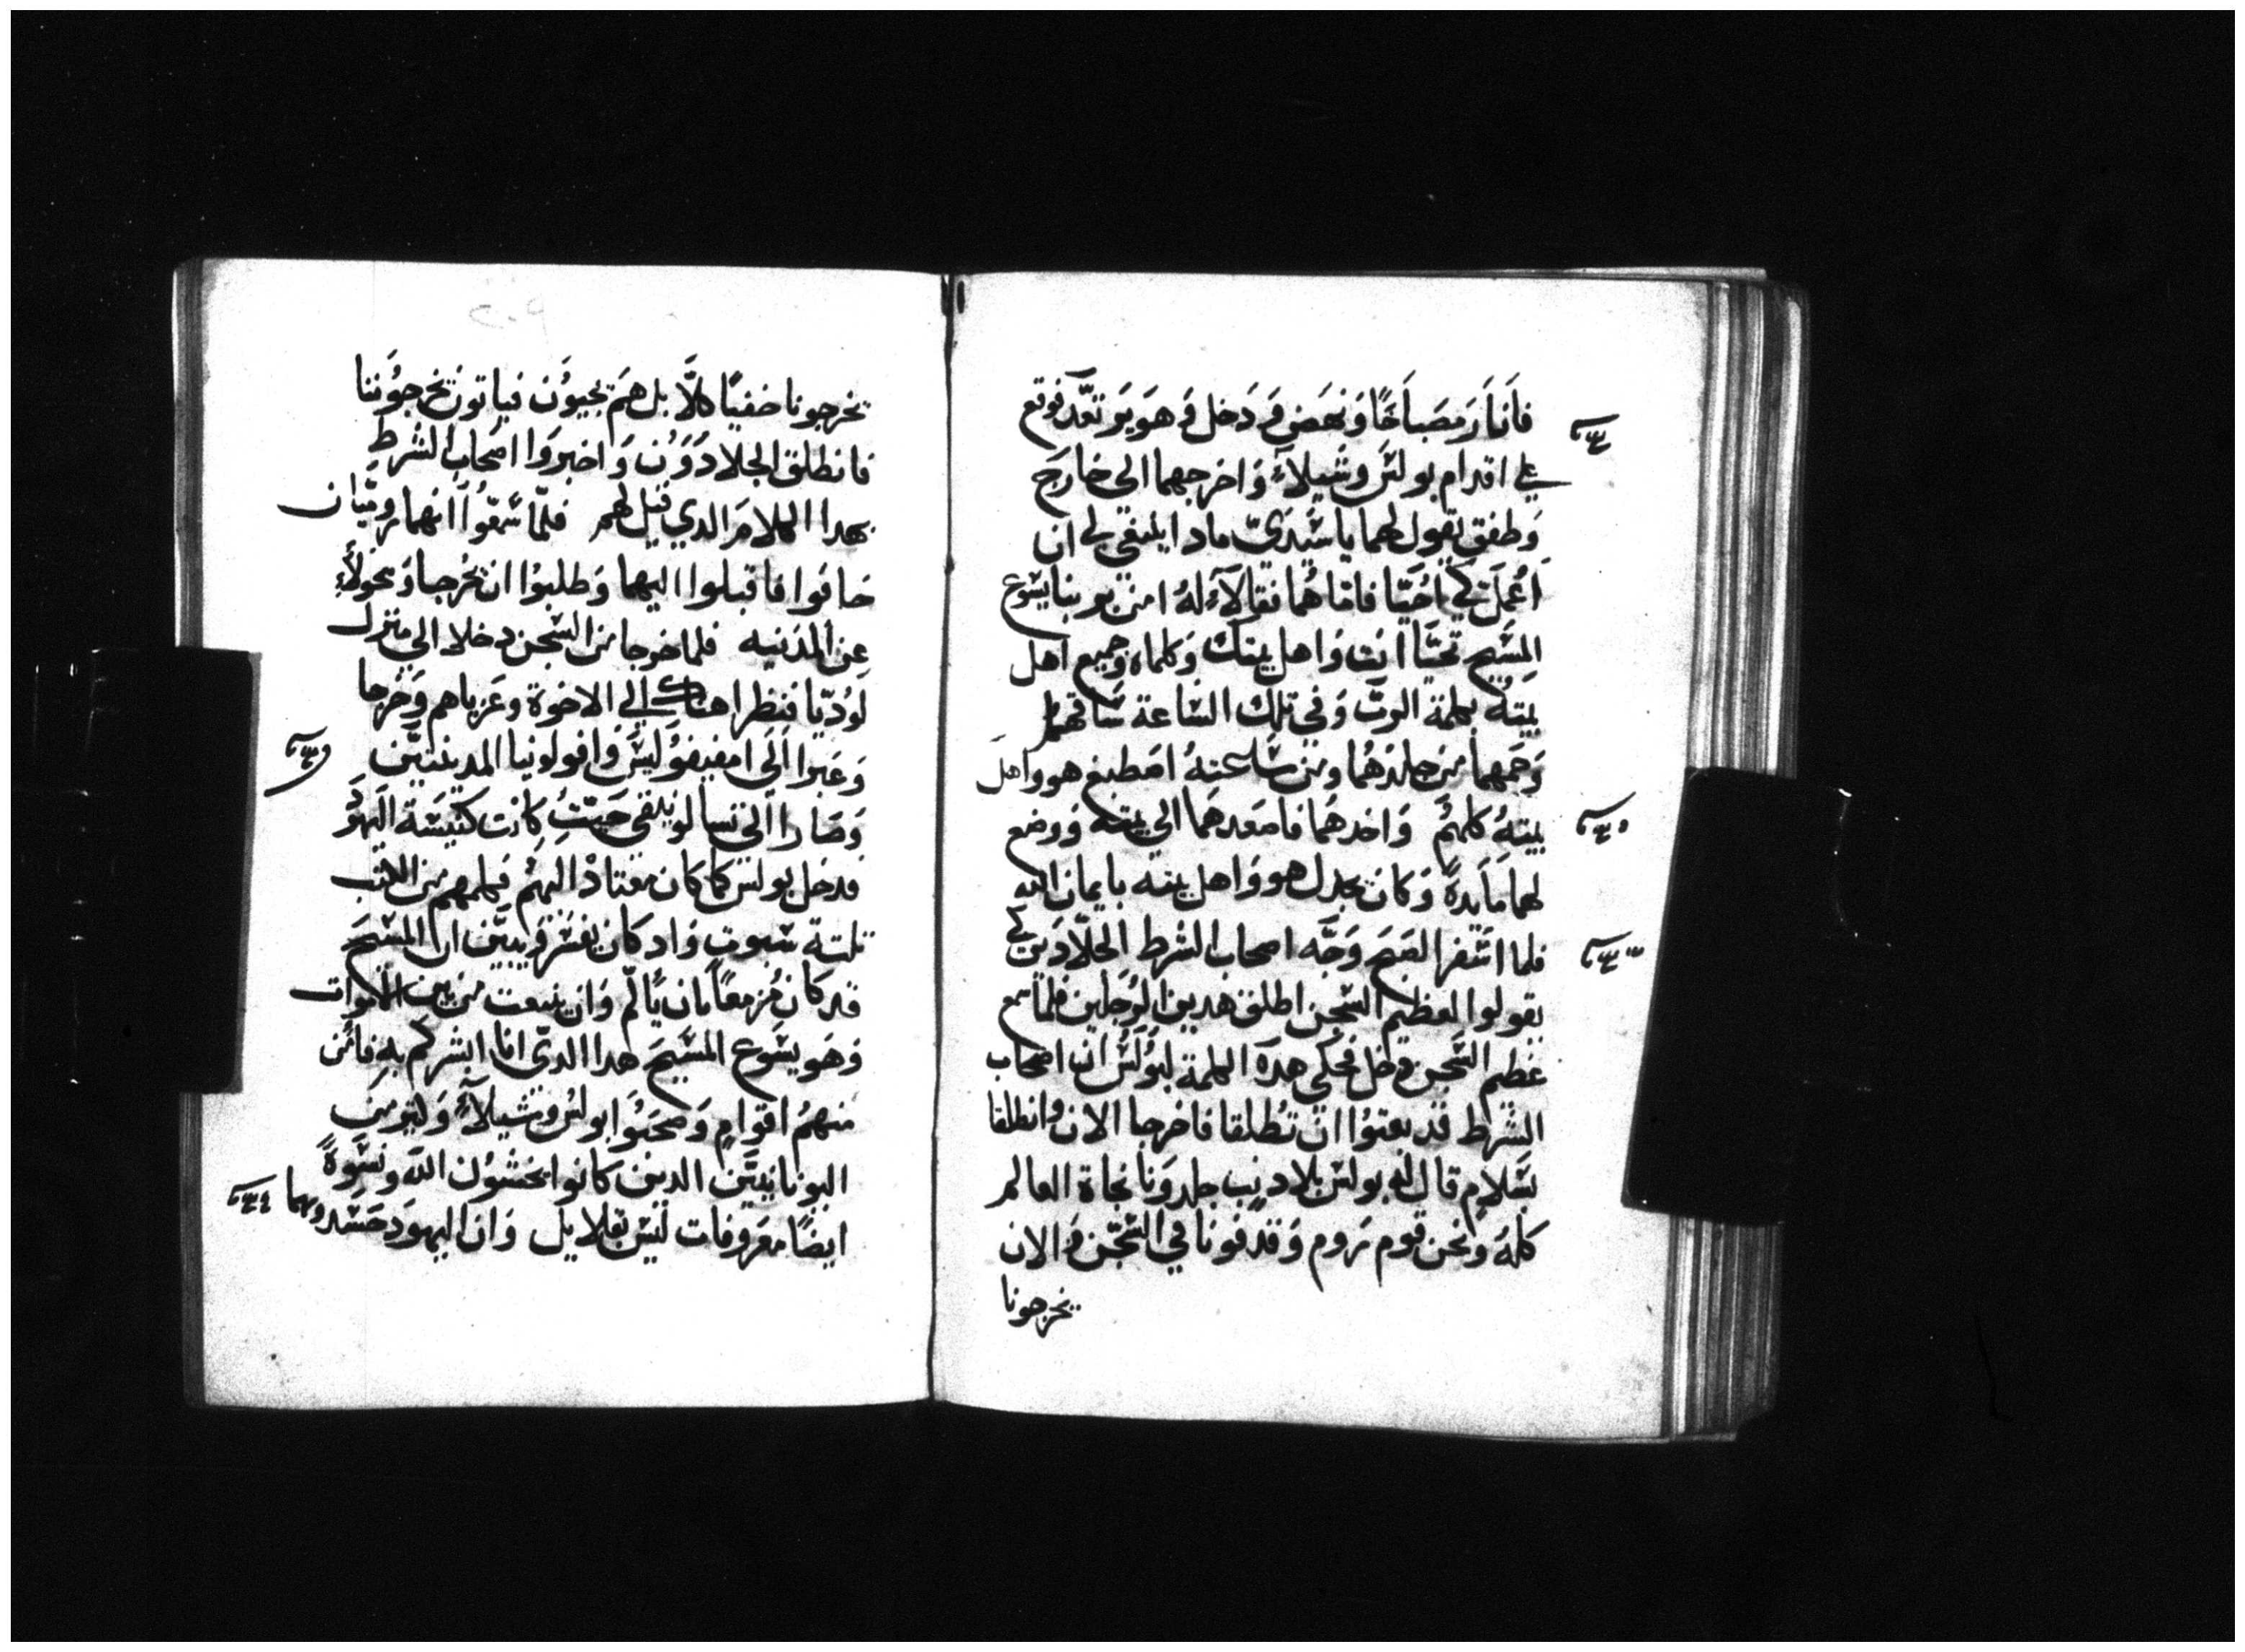 فانار مصباحًا ونهض ودخل وهو يرتعد فوقع
على اقدام بولس وشيلاء واخرجهما الى خارج
وطفق يقول لهما يا سيدي مادا ينبغي لي ان
اعمل كي احيا فاما هما فقالاء له امن بربنا يسوع
المسيح تحيا انت واهل بيتك وكلماه وجميع اهل
بيته بكلمة الرب وفي تلك الساعة ساقهما
وحمهما من جلدهما ومن ساعته اصطبغ هو واهل
بيته كلهم واخدهما فاصعدهما الى بيته ووضع
لهما مايدة وكان يجدل هو واهل بيته بايمان الله
فلما اسفر الصبح وجه اصحاب الشرط الجلادين كي
يقولوا لعظيم السجن اطلق هدين الرجلين فلما سمع
عظيم السجن دخل فحكى هده الكلمة لبولس ان اصحاب
الشرط قد بعتوا ان تطلقا فاخرجا الان وانطلقا
بسلام قال له بولس بلا دنب جلدونا تجاة العالم
كله ونحن قوم روم وقدفونا في السجن والان
يخرجونا
يخرجونا خفيًا كلا بل هم يجيون فياتون يخرجوننا
فانطلق الجلادوون واخبروا اصحاب الشرط
بهدا الكلام الدي قيل لهم فلما سمعوا انهما روميان
خافوا فاقبلوا اليهما وطلبوا ان يخرجا ويحولاء
عن المدنيه فلما خرجا من السجن دخلا الى منزل
لوديا فنظرا هناك الى الاخوة وعزياهم وخرجا
وعبرا الى امفيفوليس وافولونيا المدينتين
وصارا الى تسالونيقي حيت كانت كنيسة اليهود
فدخل بولس كما كان معتاد اليهم فكلمهم من الكتب
تلتة سبوت واد كان يفسر ويبين ان المسيح
قد كان مزمعًا بان يالم وان ينبعت من بين الاموات
وهو يسوع المسيح هدا الدي انا ابشركم به فامن
منهم اقوام وصحبوا بولس وشيلاء وكتير من
اليونانيين الدين كانوا يخشون الله ونسوة
ايضًا معروفات ليس بقلايل وان اليهود حسدوهما